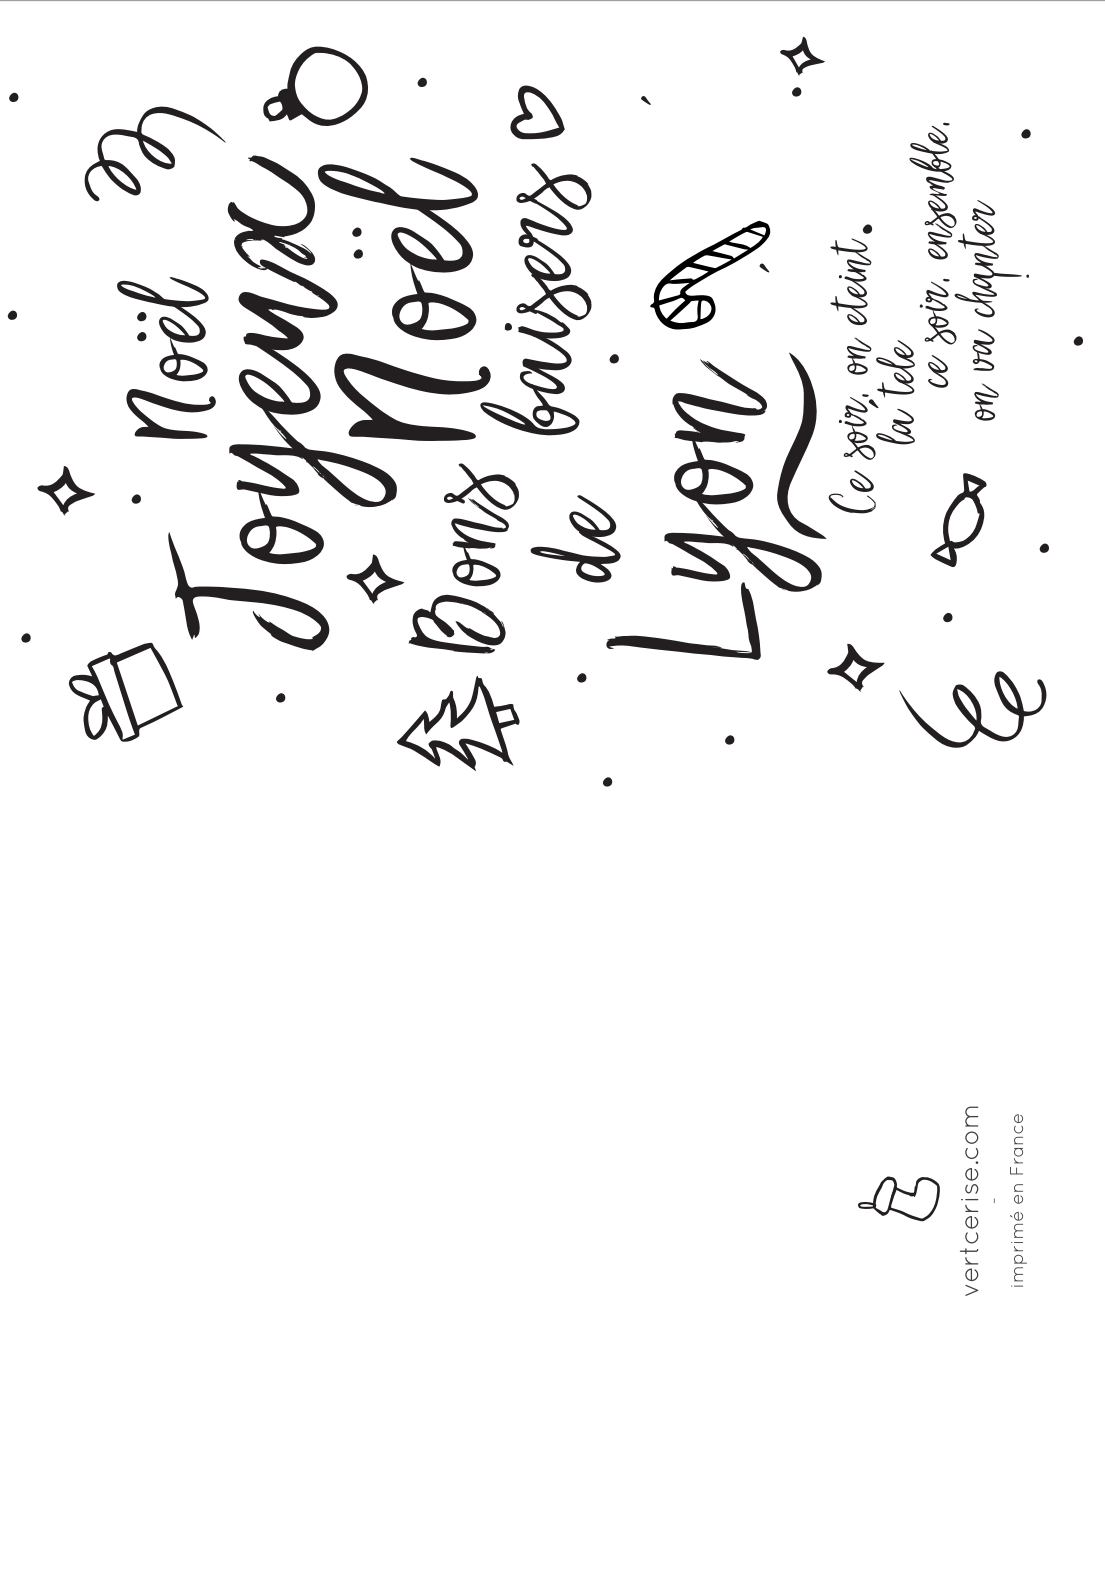 noël
Joyeux
Noël
Bons baisers
de
Lyon
Ce soir, on eteint
la télé
ce soir, ensemble,
on va chanter
!
vertcerise.com
-
imprimé en France